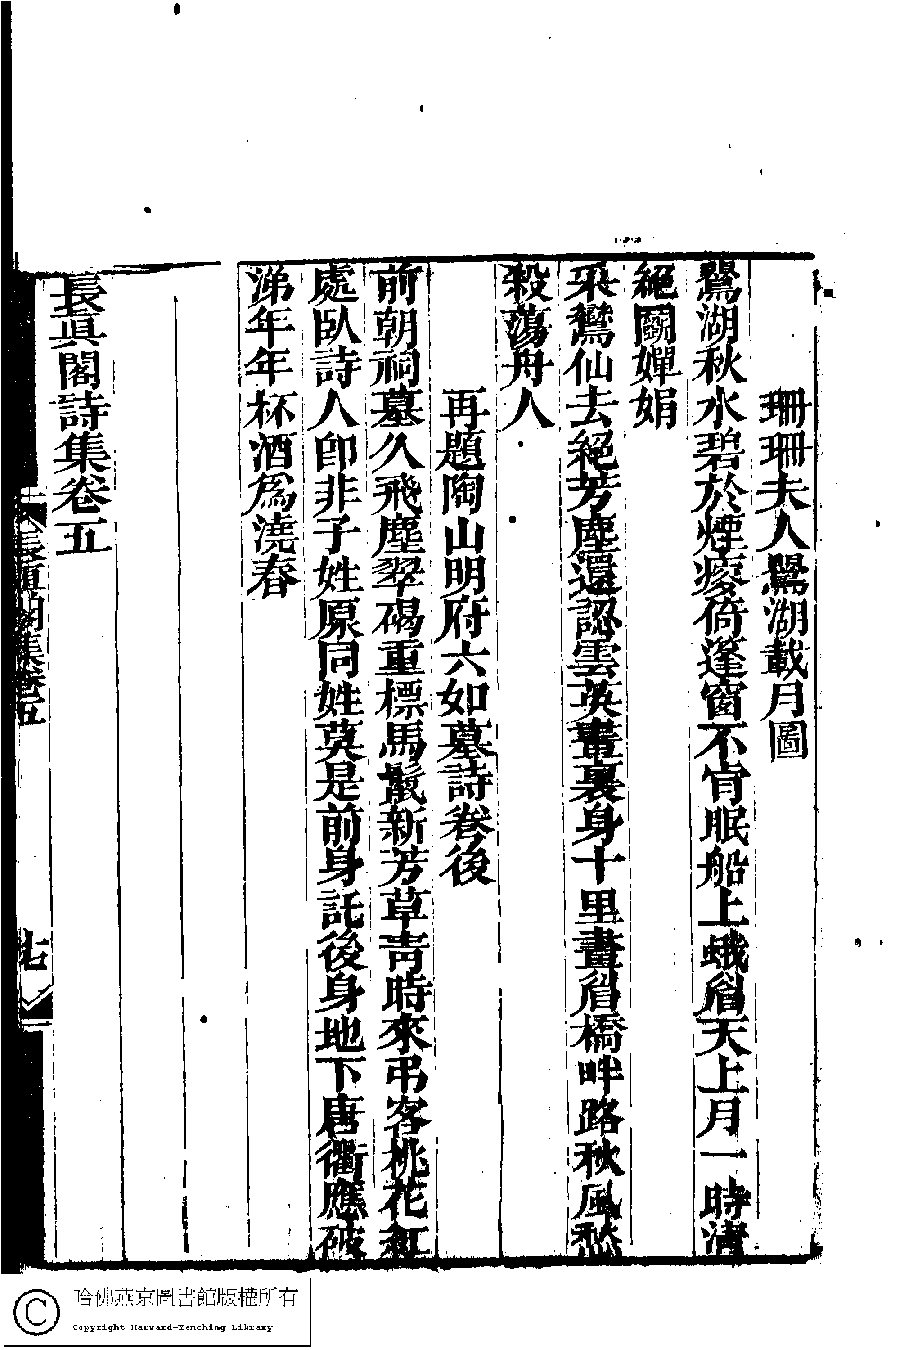 珊珊夫人鷖湖載月圖
鷖湖秋水碧於煙痠倚篷窗不肯眠船上蛾眉天上月一時清
絕鬬嬋娟
釆鸞仙去絕芳塵還認雲英畫裏身十里畫眉橋畔路秋風愁
殺蕩舟人
再題陶山明府六如墓詩卷後
前朝祠墓久飛塵翠碣重標馬鬣新芳草靑時來弔客桃花紅
處臥詩人卽非子姓原同姓莫是前身託後身地下唐衢應破
涕年年杯酒爲澆春
長眞閣詩集卷五
長眞閣集卷五
七
哈佛燕京圖書館版權所有
Copyright Harvard-Yenching Library